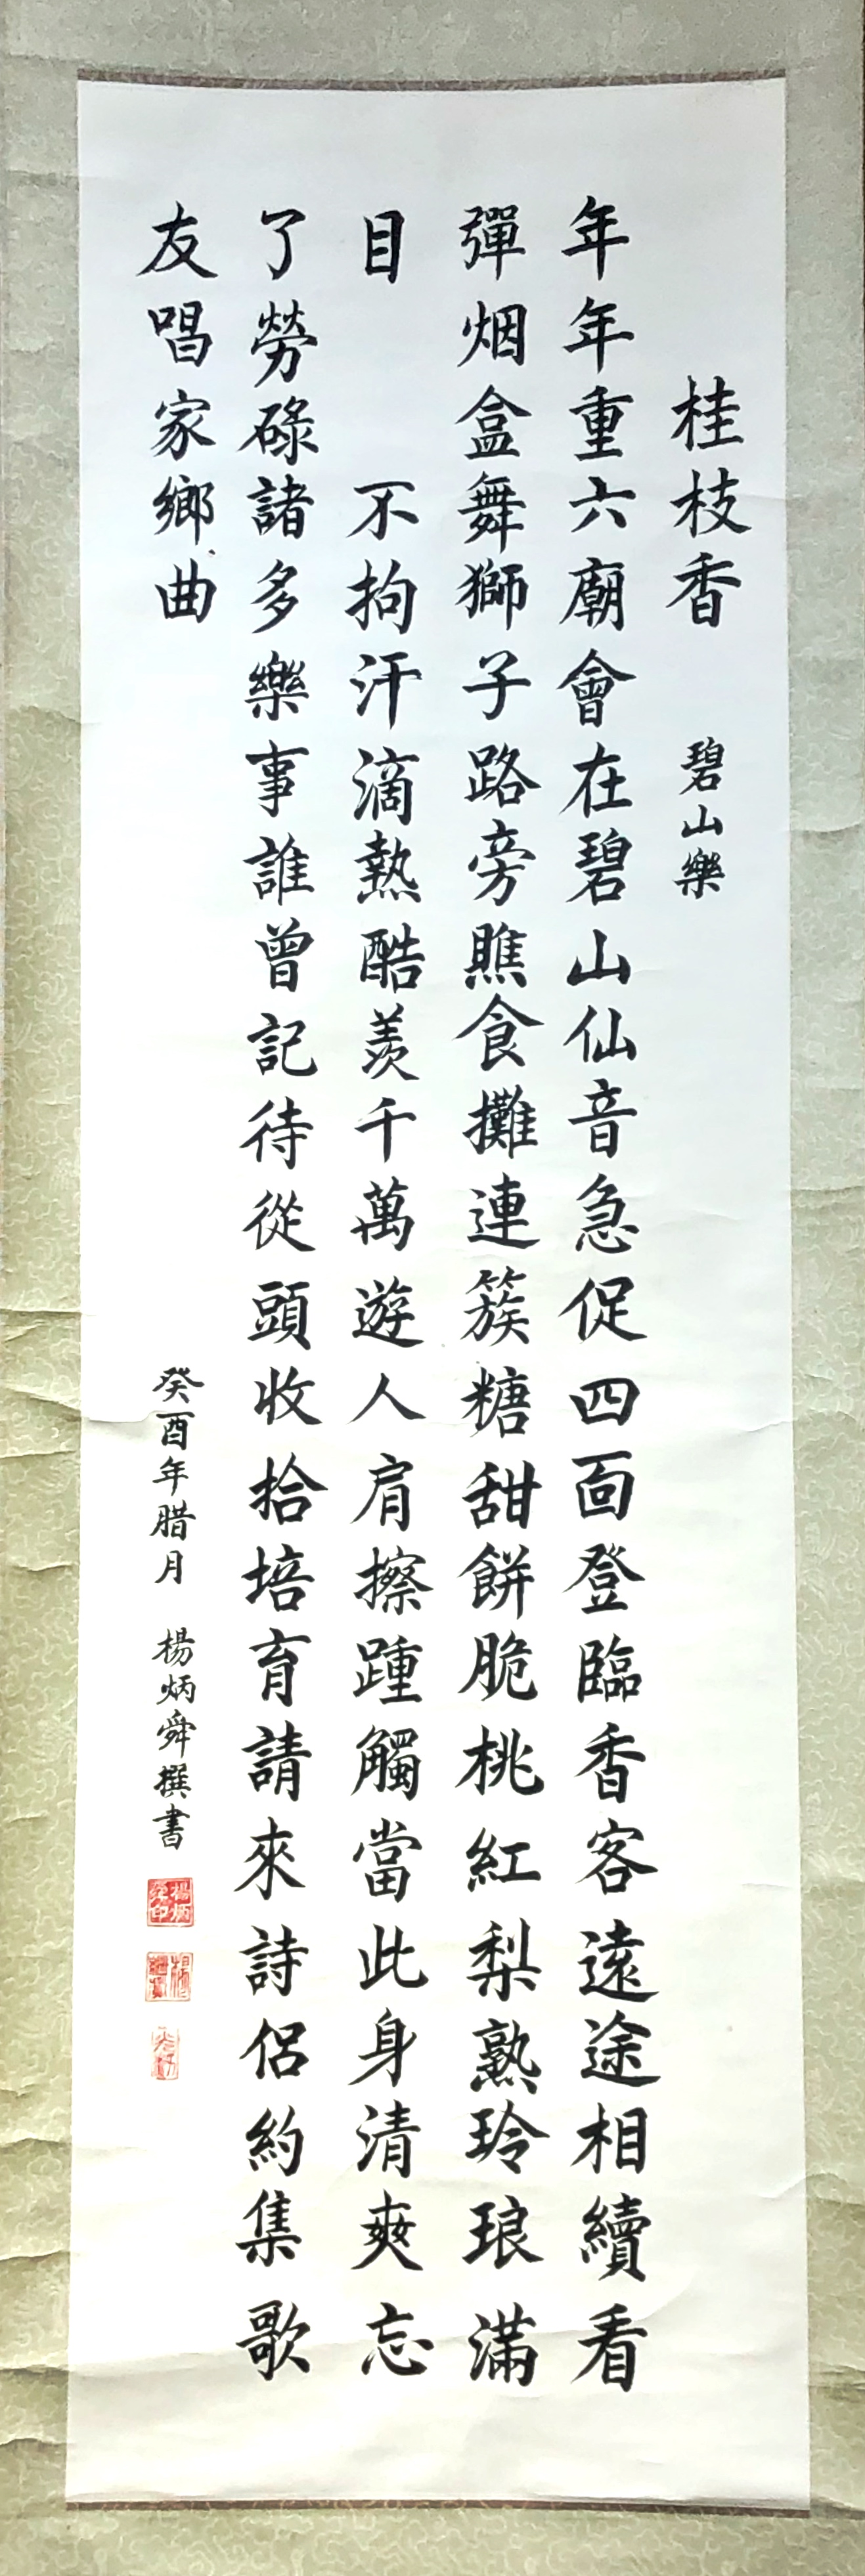 桂枝香 碧山樂
年年重六廟會在碧山仙音急促四面登臨香客遠途相續看
彈烟盒舞獅子路旁瞧食攤連簇糖甜餅脆桃紅梨熟玲琅滿
目 不拘汗滴熱酷羨千萬遊人肩擦踵觸當此身清爽忘
了勞碌諸多樂事誰曾記待從頭收拾培育請來詩侶約集歌
友唱家鄉曲
癸酉年腊月 楊炳舜撰書